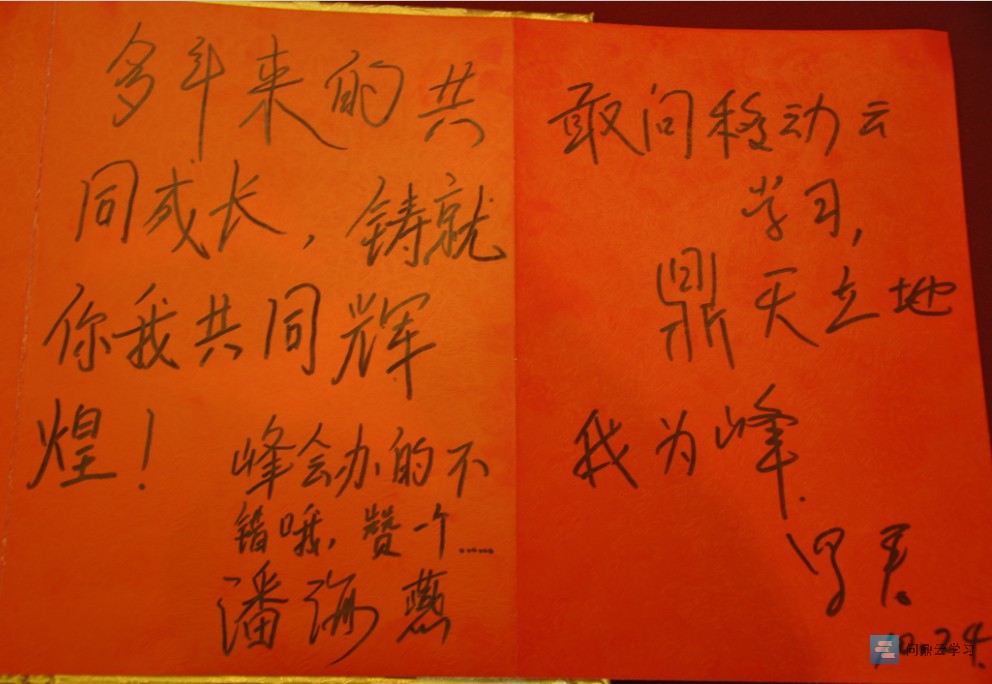 多年来的共
同成长，铸就
你我共同辉
煌！
峰会办的不
错哦，赞一个……
潘海燕
敢问移动云
学习，
鼎天立地
我为峰.
10.24.
问鼎云学习